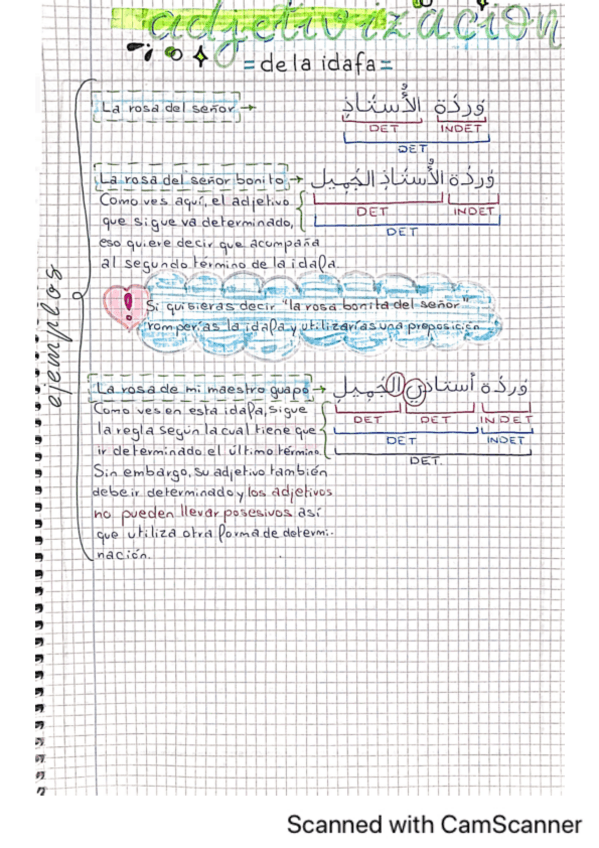 adjetivización
= de la idafa =
ejemplos
La rosa del señor → وَردَة الأُستَاذِ
DET INDET
DET
La rosa del señor bonito → وَردَة الأُستَاذ الجَمِيل
Como ves aquí, el adjetivo
DET INDET
que sigue va determinado,
DET
eso quiere decir que acompaña
al segundo término de la idafa.
! Si quisieras decir "la rosa bonita del señor"
romperías la idafa y utilizarías una preposición
La rosa de mi maestro guapo → وَردَة أستاذي الجَمِيل
Como ves en esta idafa, sigue
DET DET INDET
la regla según la cual tiene que
DET INDET
ir determinado el último término.
DET.
Sin embargo, su adjetivo también
debe ir determinado y los adjetivos
no pueden llevar posesivos así
que utiliza otra forma de determi-
nación.
Scanned with CamScanner